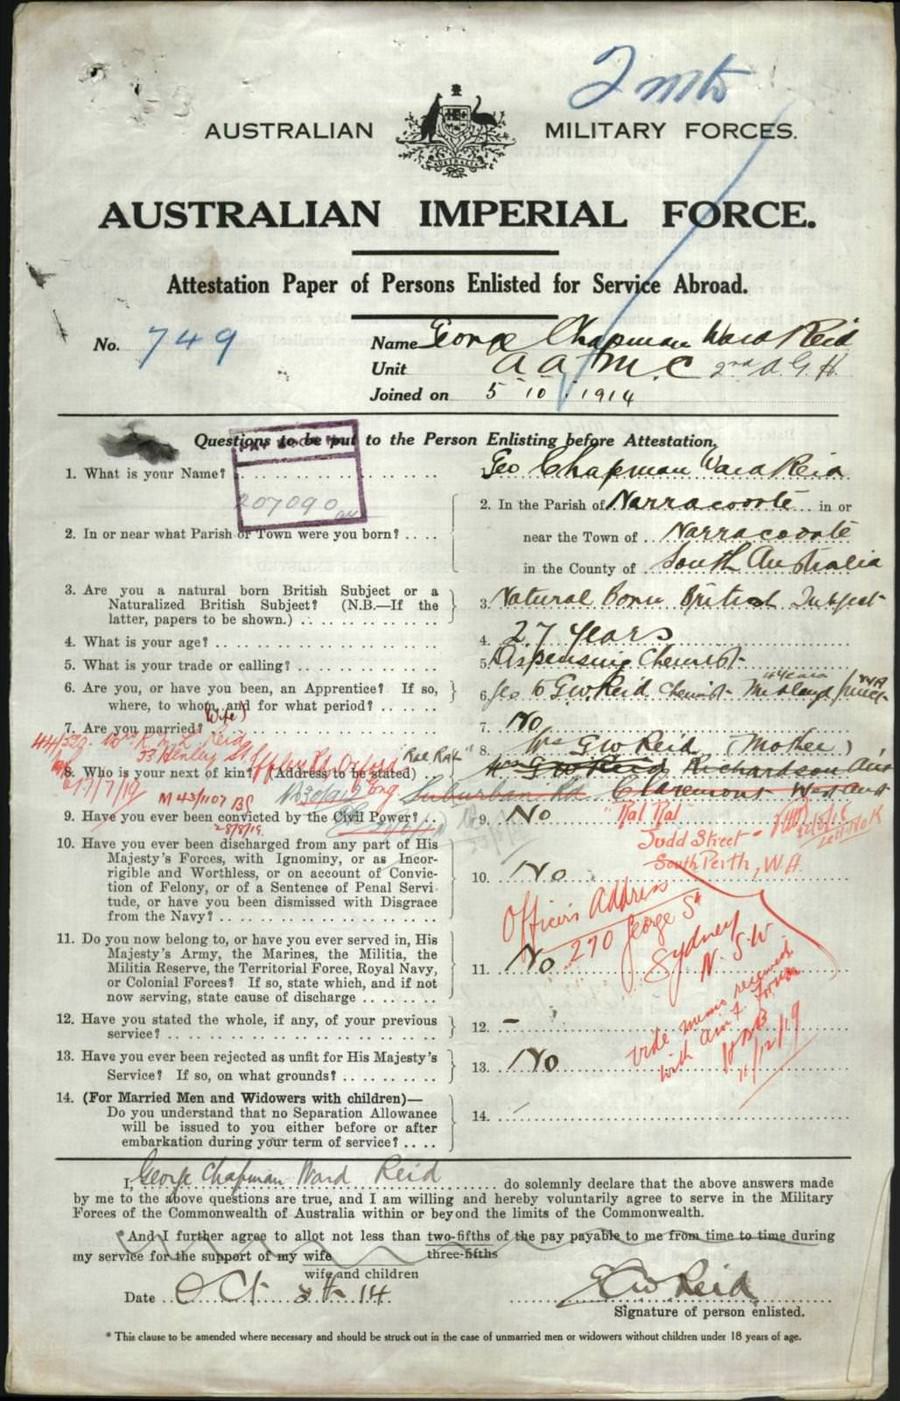 2 mto
AUSTRALIAN MILITARY FORCES.
AUSTRALIAN IMPERIAL FORCE.
Attestation Paper of Persons Enlisted for Service Abroad.
No. 749
Name George Chapman Ward Reid
Unit A A M C 2nd A G H
Joined on 5 10 1914
Questions to be put to the Person Enlisting before Attestation.
207090
1. What is your Name? Geo Chapman Ward Reid
2. In or near what Parish or Town were you born?
2. In the Parish of Narracoorte in or
near the Town of Narracoorte
in the County of South Australia
3. Are you a natural born British Subject or a
Naturalized British Subject? (N.B.—If the
latter, papers to be shown.)
3. Natural Born British Subject
4. What is your age? 4. 27 years
5. What is your trade or calling? 5. Dispensing Chemist
6. Are you, or have you been, an Apprentice? If so,
where, to whom, and for what period?
6. Yes to G W Reid Chemist Midland Junct WA 4 years
7. Are you married? 7. No
(Wife)
44/529 Mrs L Reid
33 Henley St Oxford Eng
"Ral Ral"
8. Who is your next of kin? (Address to be stated)
8. Mrs G W Reid (Mother)
Mrs G W Reid Richardson Av
Suburban Rd Claremont West Aust
17/7/19 M 43/1107
9. Have you ever been convicted by the Civil Power? 9. No
"Ral Ral"
Judd Street
South Perth, W.A.
10. Have you ever been discharged from any part of His
Majesty's Forces, with Ignominy, or as Incor-
rigible and Worthless, or on account of Convic-
tion of Felony, or of a Sentence of Penal Servi-
tude, or have you been dismissed with Disgrace
from the Navy?
10. No
Officers Address
270 George St
Sydney
N.S.W
11. Do you now belong to, or have you ever served in, His
Majesty's Army, the Marines, the Militia, the
Militia Reserve, the Territorial Force, Royal Navy,
or Colonial Forces? If so, state which, and if not
now serving, state cause of discharge
11. No
vide memo received
with
11/12/19
12. Have you stated the whole, if any, of your previous
service?
12. -
13. Have you ever been rejected as unfit for His Majesty's
Service? If so, on what grounds?
13. No
14. (For Married Men and Widowers with children)—
Do you understand that no Separation Allowance
will be issued to you either before or after
embarkation during your term of service?
14.
I, George Chapman Ward Reid do solemnly declare that the above answers made
by me to the above questions are true, and I am willing and hereby voluntarily agree to serve in the Military
Forces of the Commonwealth of Australia within or beyond the limits of the Commonwealth.
*And I further agree to allot not less than two-fifths of the pay payable to me from time to time during
three-fifths
my service for the support of my wife
wife and children
Date Oct 14
G C W Reid
Signature of person enlisted.
* This clause to be amended where necessary and should be struck out in the case of unmarried men or widowers without children under 18 years of age.